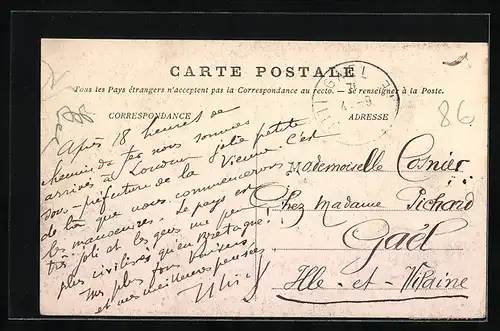 CARTE POSTALE
Tous les Pays étrangers n'acceptent pas la Correspondance au recto. — Se renseigner à la Poste.
CORRESPONDANCE
ADRESSE
86
Après 18 heures de
chemin de fer nous sommes
arrivés à Loudun jolie petite
sous-préfecture de la Vienne. C'est
de là que nous commencerons
les manœuvres. Le pays est
très joli et les gens me
plus civilisés qu'en Bretagne!
plus
et mes meilleures pensées
Mademoiselle Cosnier
Chez Madame Pichard
Gaël
Ille-et-Vilaine